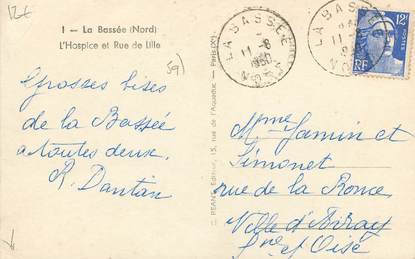 12€
1 — La Bassée (Nord)
L'Hospice et Rue de Lille
59)
Grosses bises
de la Bassée
a toutes deux.
LA BASSÉE
11-8
1950
NORD
LA BASSÉE
11-8
NORD
12F
RF
15, rue de l'Aqueduc — Paris (Xe)
Mme Jamin et
Simonet
rue de la Ronce
Ville d'Avray
Sne et Oise